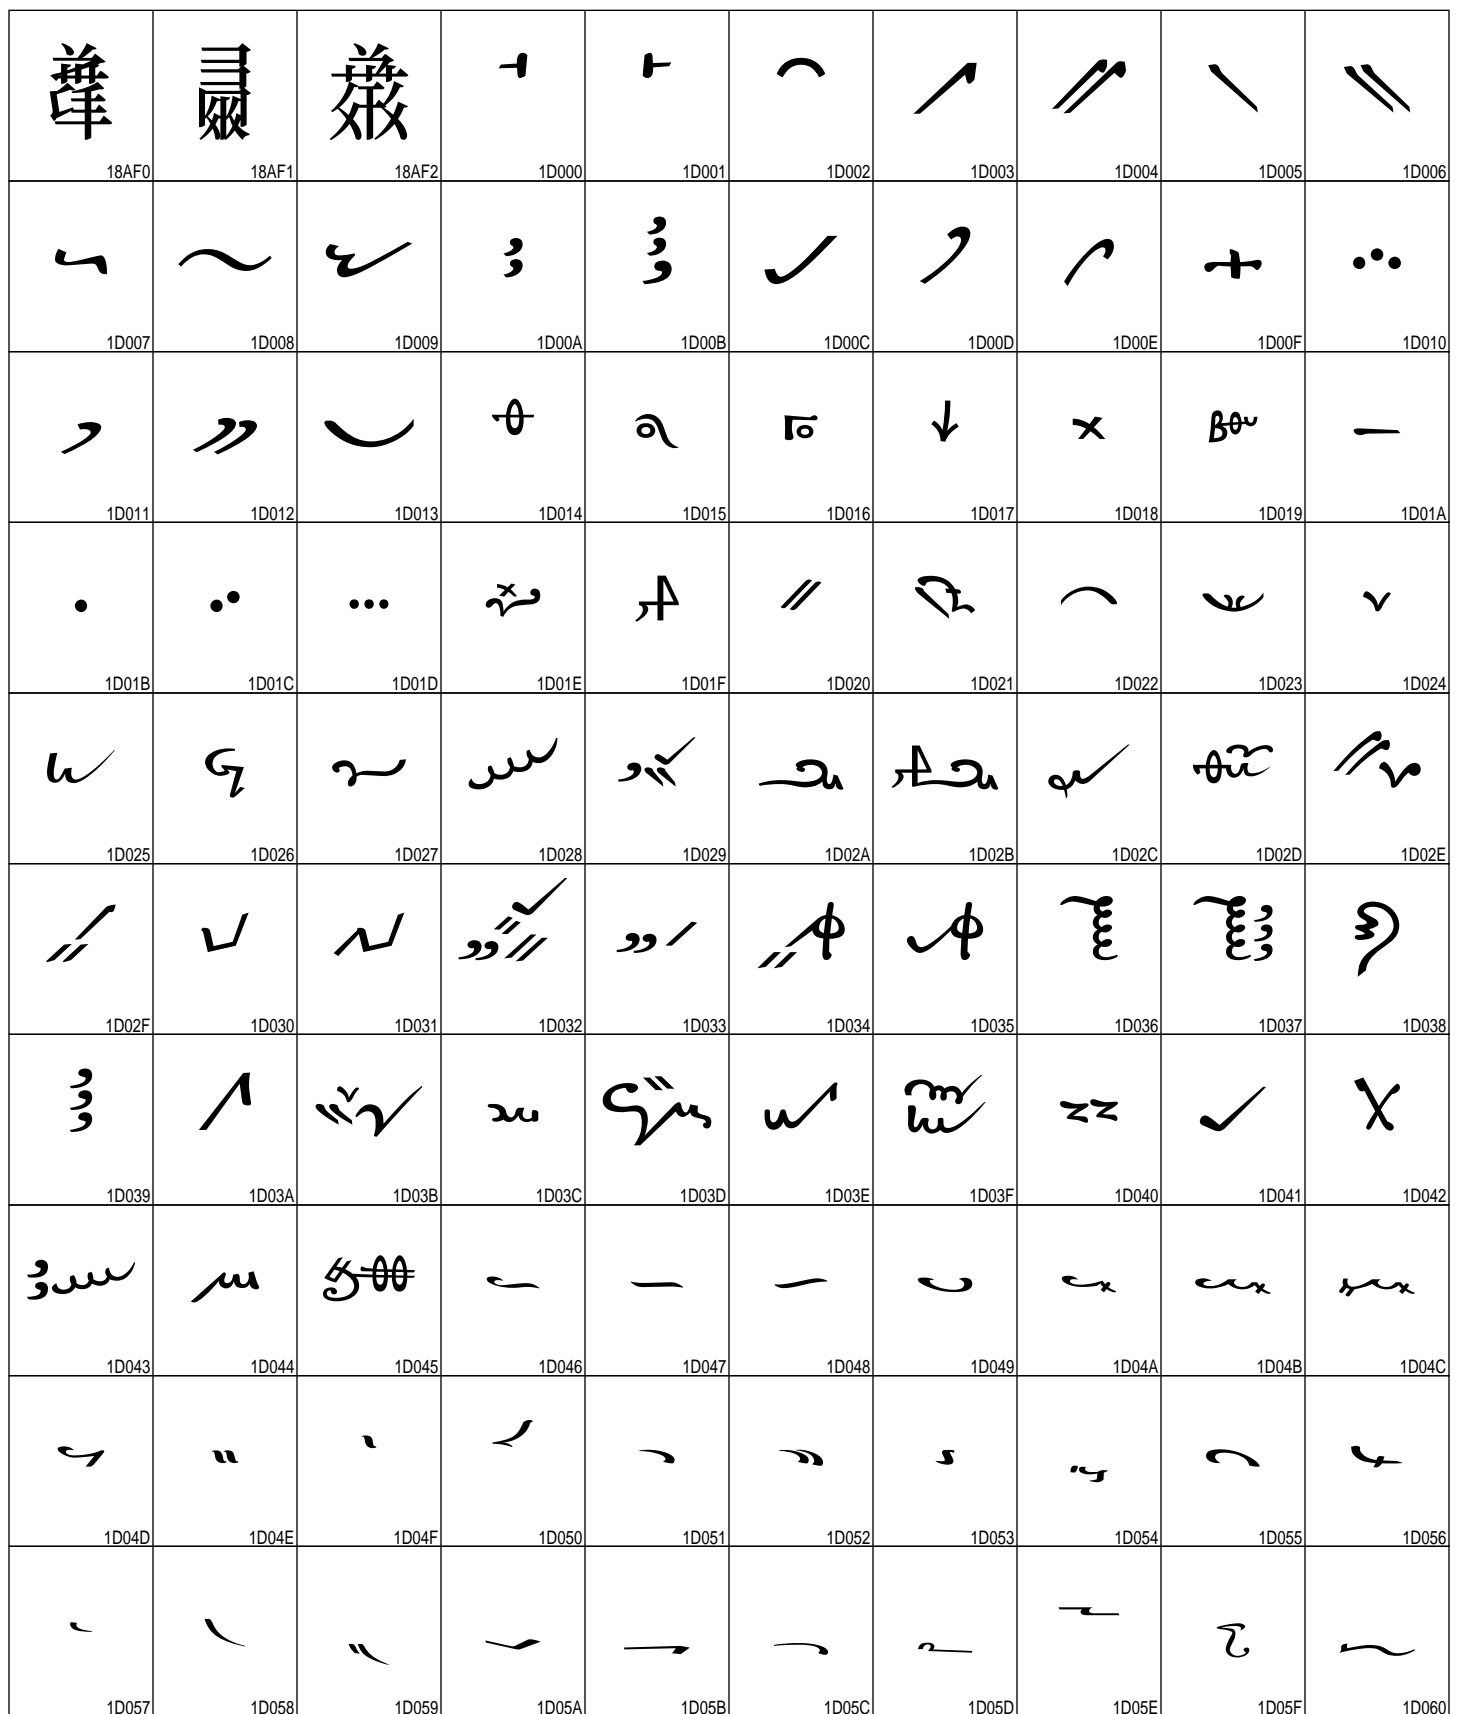 𘫰 𘫱 𘫲 𝀀 𝀁 𝀂 𝀃 𝀄 𝀅 𝀆
18AF0 18AF1 18AF2 1D000 1D001 1D002 1D003 1D004 1D005 1D006
𝀇 𝀈 𝀉 𝀊 𝀋 𝀌 𝀍 𝀎 𝀏 𝀐
1D007 1D008 1D009 1D00A 1D00B 1D00C 1D00D 1D00E 1D00F 1D010
𝀑 𝀒 𝀓 𝀔 𝀕 𝀖 𝀗 𝀘 𝀙 𝀚
1D011 1D012 1D013 1D014 1D015 1D016 1D017 1D018 1D019 1D01A
𝀛 𝀜 𝀝 𝀞 𝀟 𝀠 𝀡 𝀢 𝀣 𝀤
1D01B 1D01C 1D01D 1D01E 1D01F 1D020 1D021 1D022 1D023 1D024
𝀥 𝀦 𝀧 𝀨 𝀩 𝀪 𝀫 𝀬 𝀭 𝀮
1D025 1D026 1D027 1D028 1D029 1D02A 1D02B 1D02C 1D02D 1D02E
𝀯 𝀰 𝀱 𝀲 𝀳 𝀴 𝀵 𝀶 𝀷 𝀸
1D02F 1D030 1D031 1D032 1D033 1D034 1D035 1D036 1D037 1D038
𝀹 𝀺 𝀻 𝀼 𝀽 𝀾 𝀿 𝁀 𝁁 𝁂
1D039 1D03A 1D03B 1D03C 1D03D 1D03E 1D03F 1D040 1D041 1D042
𝁃 𝁄 𝁅 𝁆 𝁇 𝁈 𝁉 𝁊 𝁋 𝁌
1D043 1D044 1D045 1D046 1D047 1D048 1D049 1D04A 1D04B 1D04C
𝁍 𝁎 𝁏 𝁐 𝁑 𝁒 𝁓 𝁔 𝁕 𝁖
1D04D 1D04E 1D04F 1D050 1D051 1D052 1D053 1D054 1D055 1D056
𝁗 𝁘 𝁙 𝁚 𝁛 𝁜 𝁝 𝁞 𝁟 𝁠
1D057 1D058 1D059 1D05A 1D05B 1D05C 1D05D 1D05E 1D05F 1D060